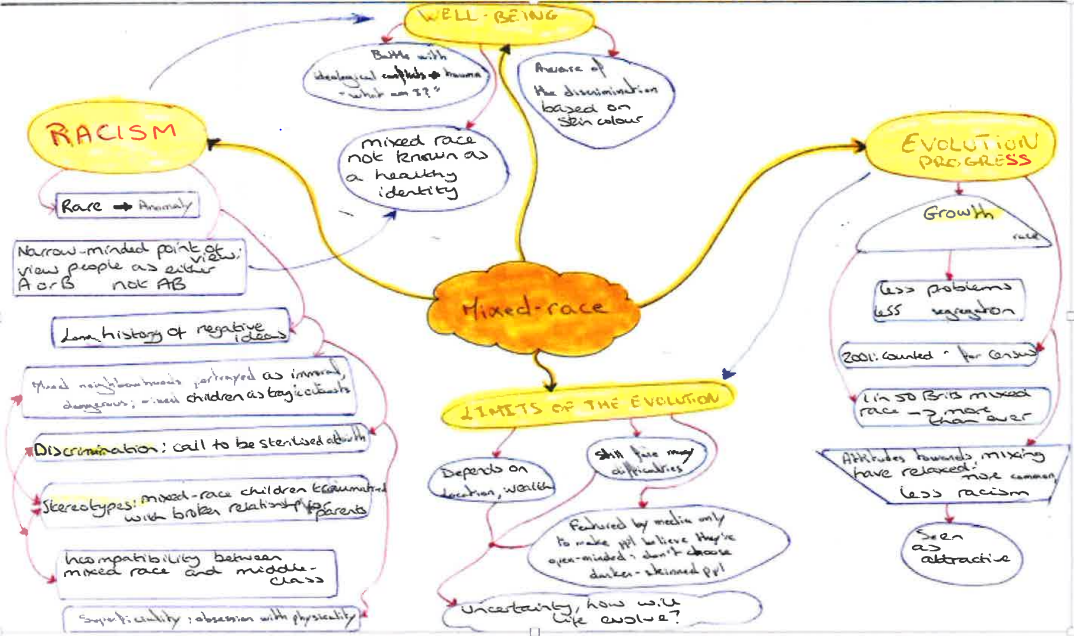 WELL-BEING
Battle with
ideological conflicts → trauma
"what am I?"
Aware of
the discrimination
based on
skin colour
mixed race
not known as
a healthy
identity
RACISM
Rare → Anomaly
Narrow-minded point of
view:
view people as either
A or B not AB
Long history of negative
ideas
Mixed neighbourhoods portrayed as immoral,
dangerous; mixed children as tragic outcasts
Discrimination: call to be sterilised at birth
Stereotypes: mixed-race children traumatised
with broken relationship for
parents
Incompatibility between
mixed race and middle-
class
Superficiality: obsession with physicality
Mixed-race
EVOLUTION
PROGRESS
Growth
race
less problems
less segregation
2001: counted for census
1 in 30 Brits mixed
race → more
than ever
Attitudes towards mixing
have relaxed:
more common,
less racism
Seen
as
attractive
LIMITS OF THE EVOLUTION
Depends on
location, wealth
Still face many
difficulties
Featured by media only
to make ppl believe they're
open-minded: don't choose
darker-skinned ppl
Uncertainty, how will
life evolve?